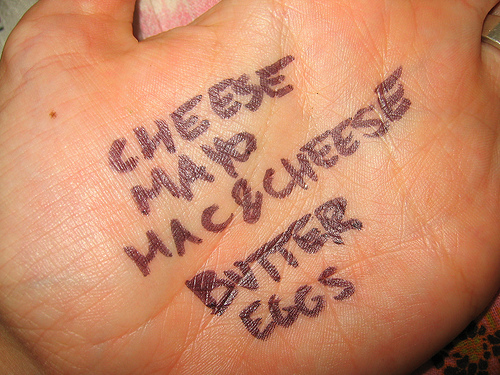 CHEESE
MAYO
MAC & CHEESE
BUTTER
EGGS